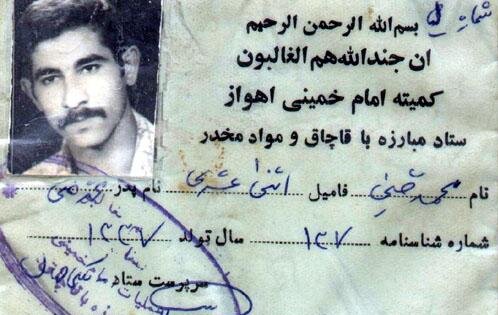 شماره ۵
بسم‌الله الرحمن الرحیم
ان جندالله هم الغالبون
کمیته امام خمینی اهواز
ستاد مبارزه با قاچاق و مواد مخدر
نام محمد رضا فامیل اثنی عشری نام پدر
شماره شناسنامه ۱۳۷ سال تولد ۱۳۳۷
سرپرست ستاد